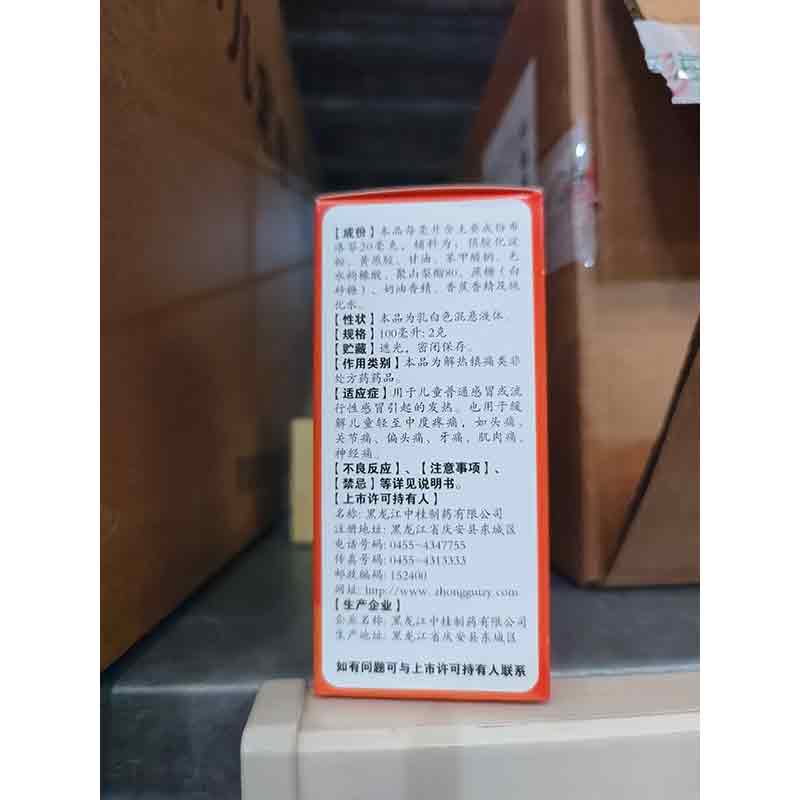 【成份】本品每毫升含主要成份布
洛芬20毫克，辅料为：预胶化淀
粉、黄原胶、甘油、苯甲酸钠、无
水枸橼酸、聚山梨酯80、蔗糖（白
砂糖）、奶油香精、香蕉香精及纯
化水。
【性状】本品为乳白色混悬液体。
【规格】100毫升：2克
【贮藏】遮光，密闭保存。
【作用类别】本品为解热镇痛类非
处方药药品。
【适应症】用于儿童普通感冒或流
行性感冒引起的发热。也用于缓
解儿童轻至中度疼痛，如头痛、
关节痛、偏头痛、牙痛、肌肉痛、
神经痛。
【不良反应】、【注意事项】、
【禁忌】等详见说明书。
【上市许可持有人】
名称：黑龙江中桂制药有限公司
注册地址：黑龙江省庆安县东城区
电话号码：0455-4347755
传真号码：0455-4313333
邮政编码：152400
网址：http://www.zhongguizy.com
【生产企业】
企业名称：黑龙江中桂制药有限公司
生产地址：黑龙江省庆安县东城区
如有问题可与上市许可持有人联系